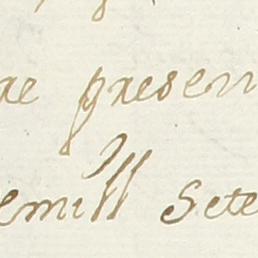 ræ præsen
emill Sete